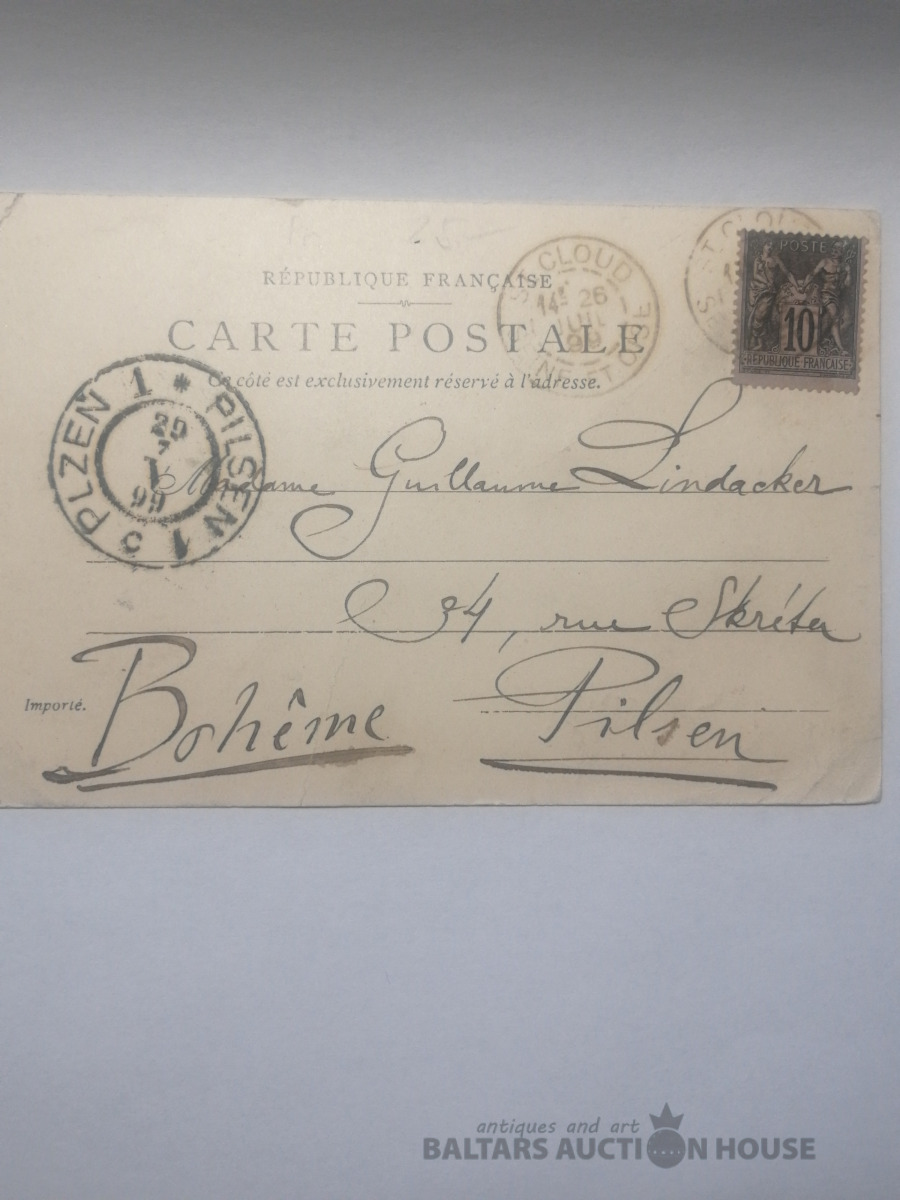 RÉPUBLIQUE FRANÇAISE
CARTE POSTALE
Ce côté est exclusivement réservé à l'adresse.
ST CLOUD
26
JUIL
99
SEINE-ET-OISE
ST CLOUD
POSTE
10
RÉPUBLIQUE FRANÇAISE
PLZEN 1 * PILSEN 1
29
7
99
Madame Guillaume Lindacker
34, rue Skréta
Importé.
Bohême
Pilsen
antiques and art
BALTARS AUCTION HOUSE